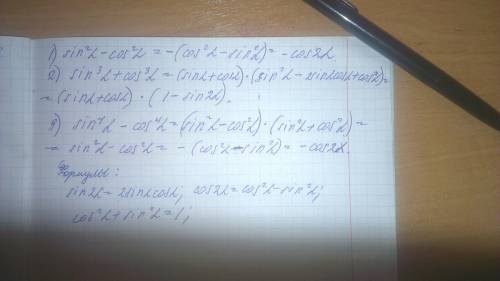 1) sin²α-cos²α = -(cos²α-sin²α) = -cos2α
2) sin³α+cos³α = (sinα+cosα)·(sin²α-sinαcosα+cos²α)=
=(sinα+cosα)·(1-sin2α).
3) sin⁴α-cos⁴α=(sin²α-cos²α)·(sin²α+cos²α)=
= sin²α-cos²α= -(cos²α-sin²α)= -cos2α.
Формулы:
sin2α=2sinαcosα; cos2α=cos²α-sin²α;
cos²α+sin²α=1;